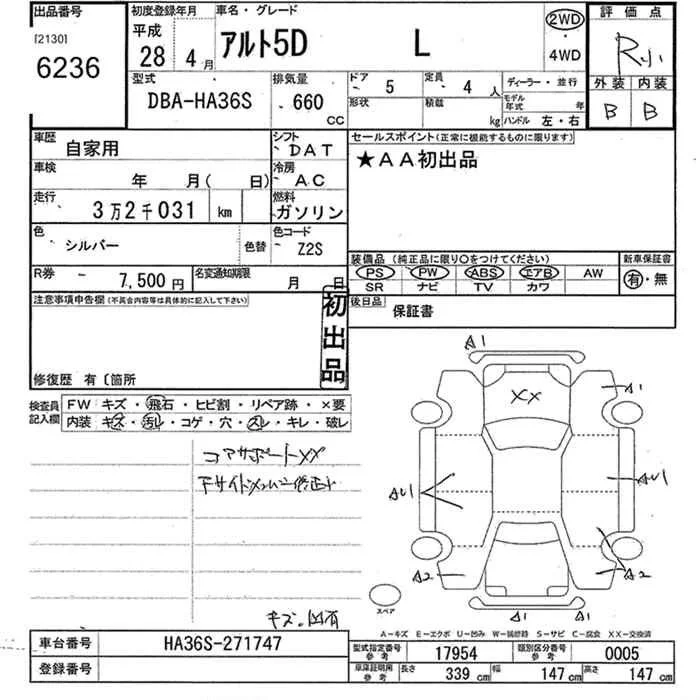 出品番号 初度登録年月 車名・グレード 評価点
[2130] 平成 28年 4月 アルト5D L 2WD・4WD R小
6236
型式 排気量 ドア 5 定員 4人 ディーラー・並行 外装 内装
DBA-HA36S 660 CC 形状 積載 kg モデル年式 年 ハンドル 左・右 B B
車歴 自家用 シフト DAT セールスポイント(正常に機能するものに限ります)
車検 年 月( 日) 冷房 AC ★AA初出品
走行 3万2千031 km 燃料 ガソリン
色 シルバー 色替 色コード Z2S 装備品 (純正品に限り○をつけてください) 新車保証書
R券 7,500円 名変通知期限 月 日 PS PW ABS エアB AW 有・無
SR ナビ TV カワ
注意事項申告欄(不具合内容等は具体的に記入して下さい) 初出品 後日品 保証書
修復歴 有〔箇所
検査員記入欄 FW キズ・飛石・ヒビ割・リペア跡・×要
内装 キズ・汚レ・コゲ・穴・スレ・キレ・破レ
コアサポートXX
A1
XX
A1
AU1
AU1
A2
A2
スペア
A1 A1
キズ、凹有
A-キズ E-エクボ U-凹み W-補修跡 S-サビ C-腐食 XX-交換済
車台番号 HA36S-271747 型式指定番号 参考 17954 類別区分番号 参考 0005
登録番号 車庫証明用 参考 長さ 339 cm 幅 147 cm 高さ 147 cm